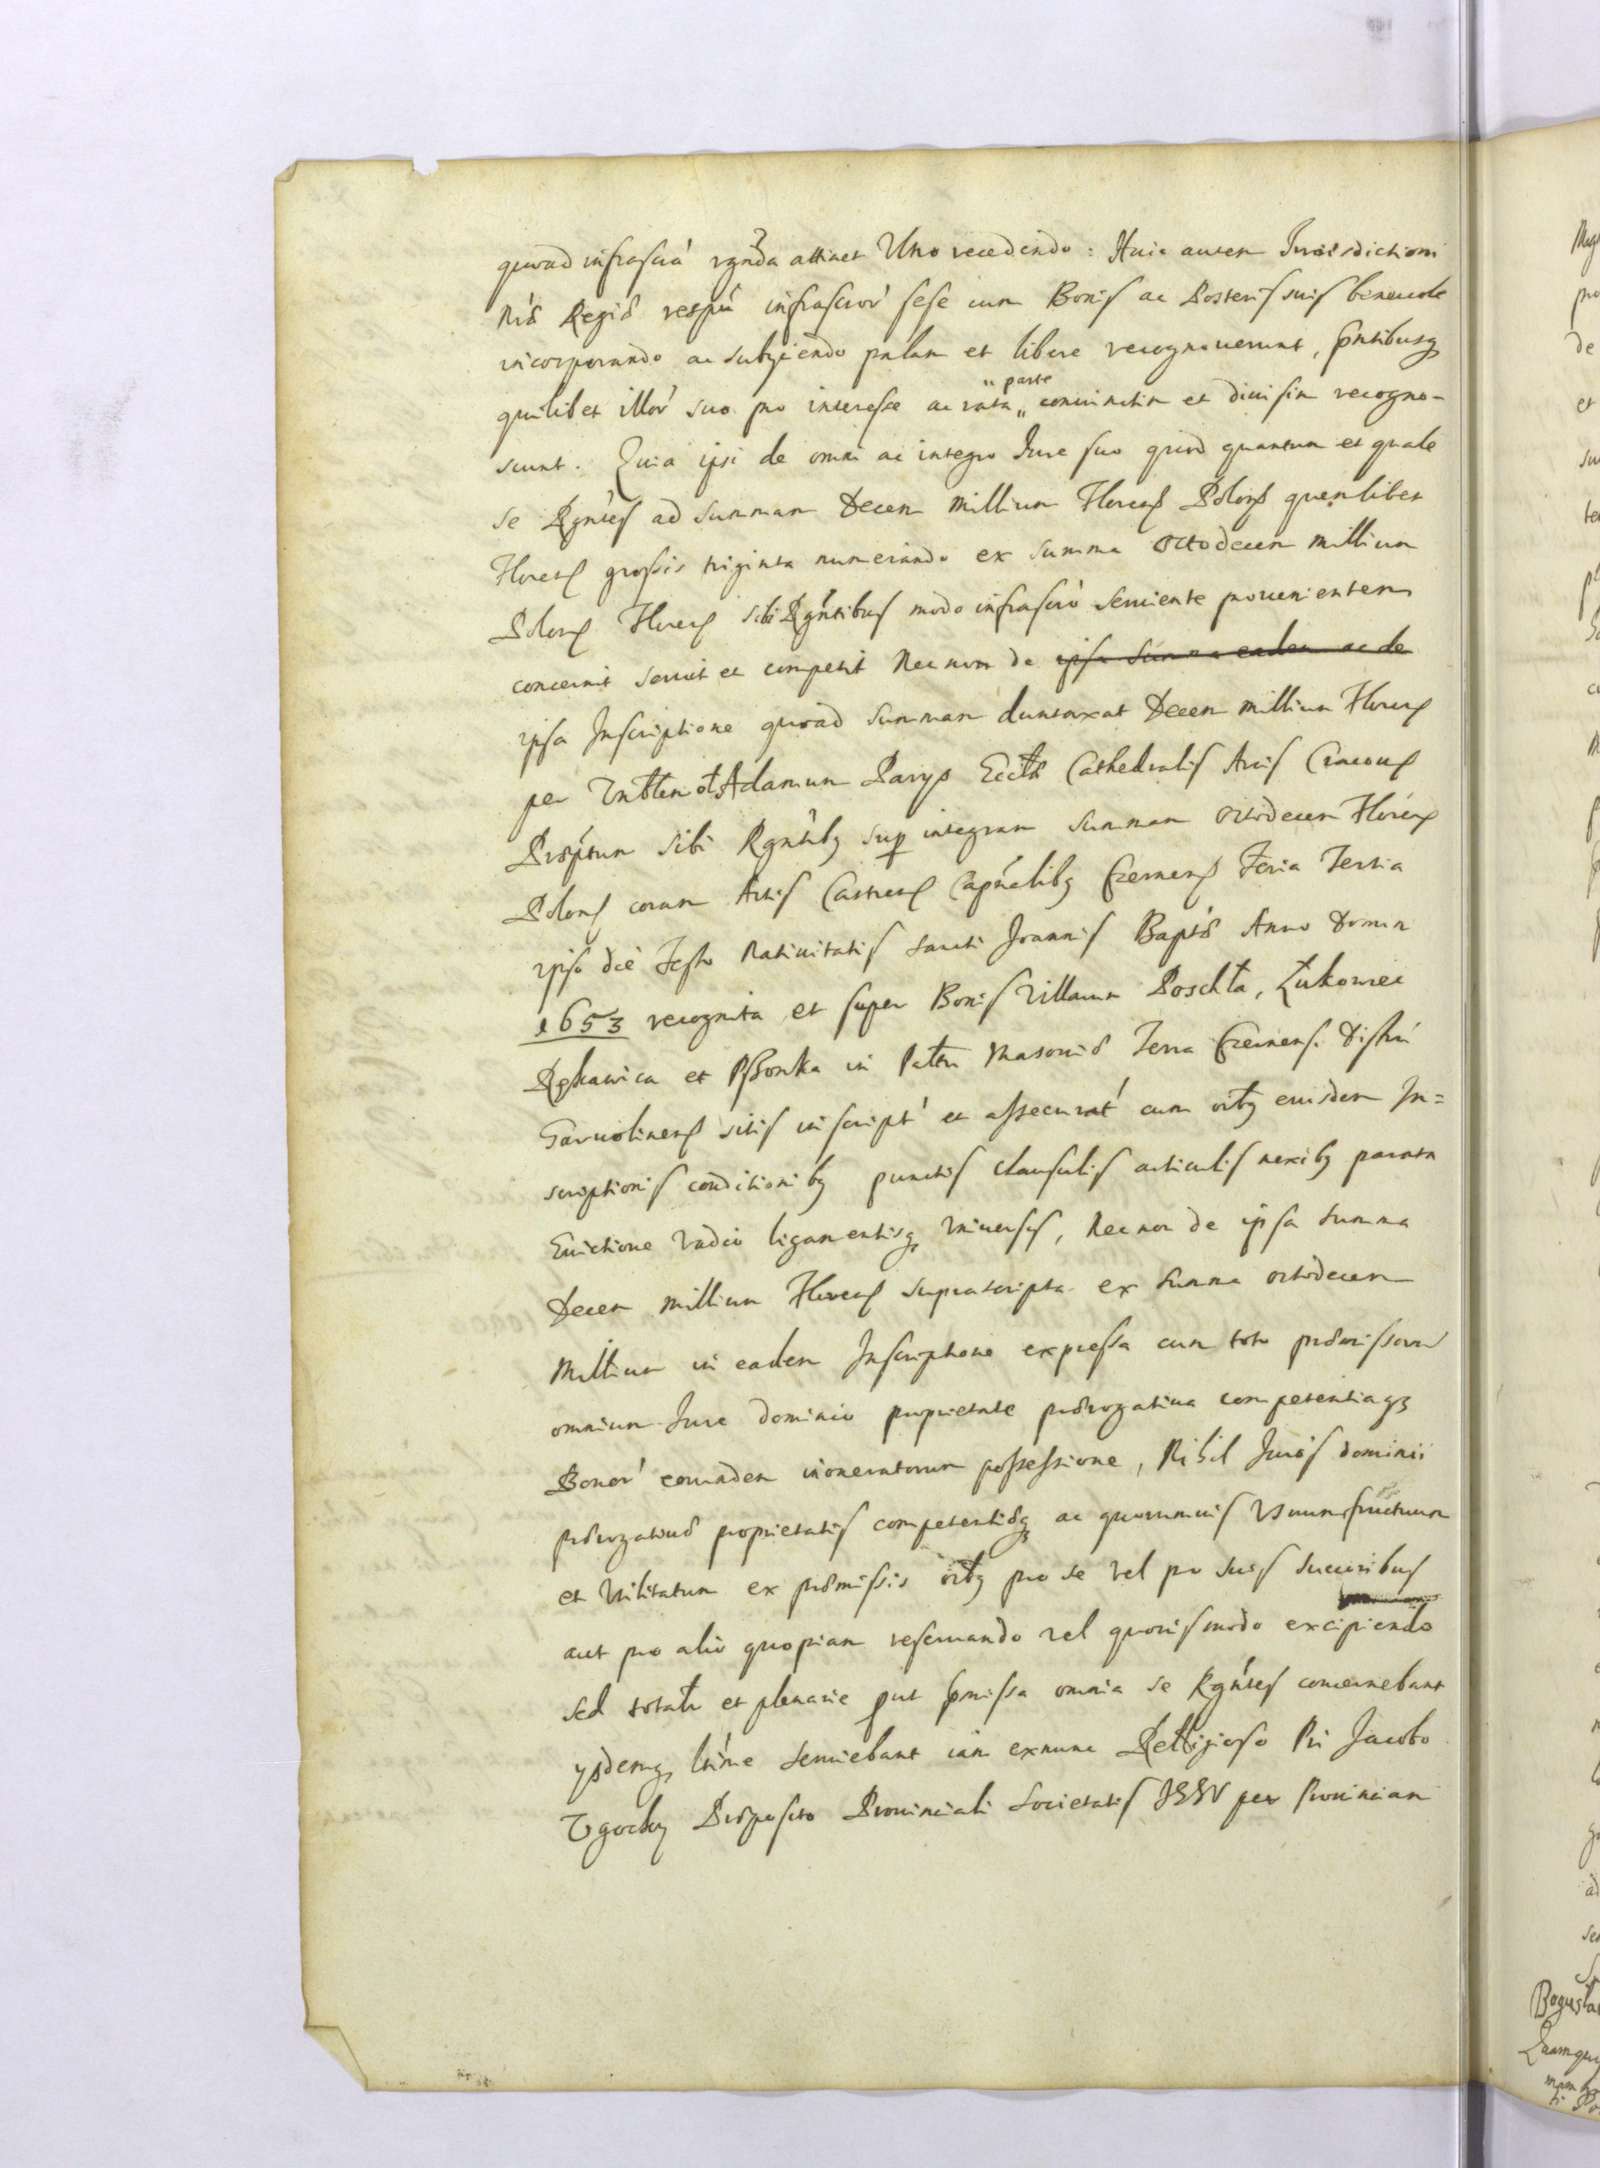 quoad infrascrá rgnda attinet Uno recedendo: Huic autem Iurisdictioni
nrã Regiã respú infrascror' sese cum Bonis ac Posteris suis beneuole
incorporando ac subijciendo palam et libere recognouerunt, pntibusq
quilibet illor' suo pro interesse ac rata parte coniunctim et diuisim recogno-
scunt. Quia ipsi de omni ac integro Iure suo quod quantum et quale
se Rgntes ad summam Decem Millium Floren Polon quemlibet
Floren grossis triginta numerando ex summa Octodecem Millium
Polon Floren sibi Rgntibus modo infrascró seruiente prouenientem
concernit seruit et competit Necnon de ipsa summa eadem ac de
ipsa Inscriptione quoad summam duntaxat Decem Millium Floren
per Adamum Parys Eccła Cathedralis Arcis Cracou
Præptum sibi Rgntibq sup integram summam octodecem Floren
Polon coram Actis Castren Capnelibq Czernen Feria Tertia
ipso die Festo Natiuitatis sancti Joannis Bapte Anno Domin
1653 recognita et super Bonis Villarum Poschła, Łukowiec
Rękawica et in Pałtu Masouiæ Terra Czernensi Distri
Garuolinen sitis inscript' et assecurat' cum oibq eiusdem In=
scriptionis conditionibq punctis clausulis articulis nexibq parata
Euictione Vadio ligamentisq Vniuersis, Necnon de ipsa summa
Decem Millium Floren suprascripta ex summa octodecem
Millium in eadem Inscriptione expressa cum toto præmissoru
omnium Iure dominio proprietate prærogatiua competentiaq
Bonor' eorundem inoneratorum possessione, Nihil Iuris dominii
prærogatiuæ proprietatis competentiæq ac quorumuis Vsuumfructuum
et Vtilitatum ex præmissis oibq pro se vel pro suis succoribus
aut pro alio quopiam reseruando vel quouismodo excipiendo
sed totałr et plenarie put pmissa omnia se Rgntes concernebant
ysdemq ltime seruiebant iam exnunc Relligioso Pri Jacobo
Vgoski Præposito Prouinciali Societatis JESV per Prouinciam